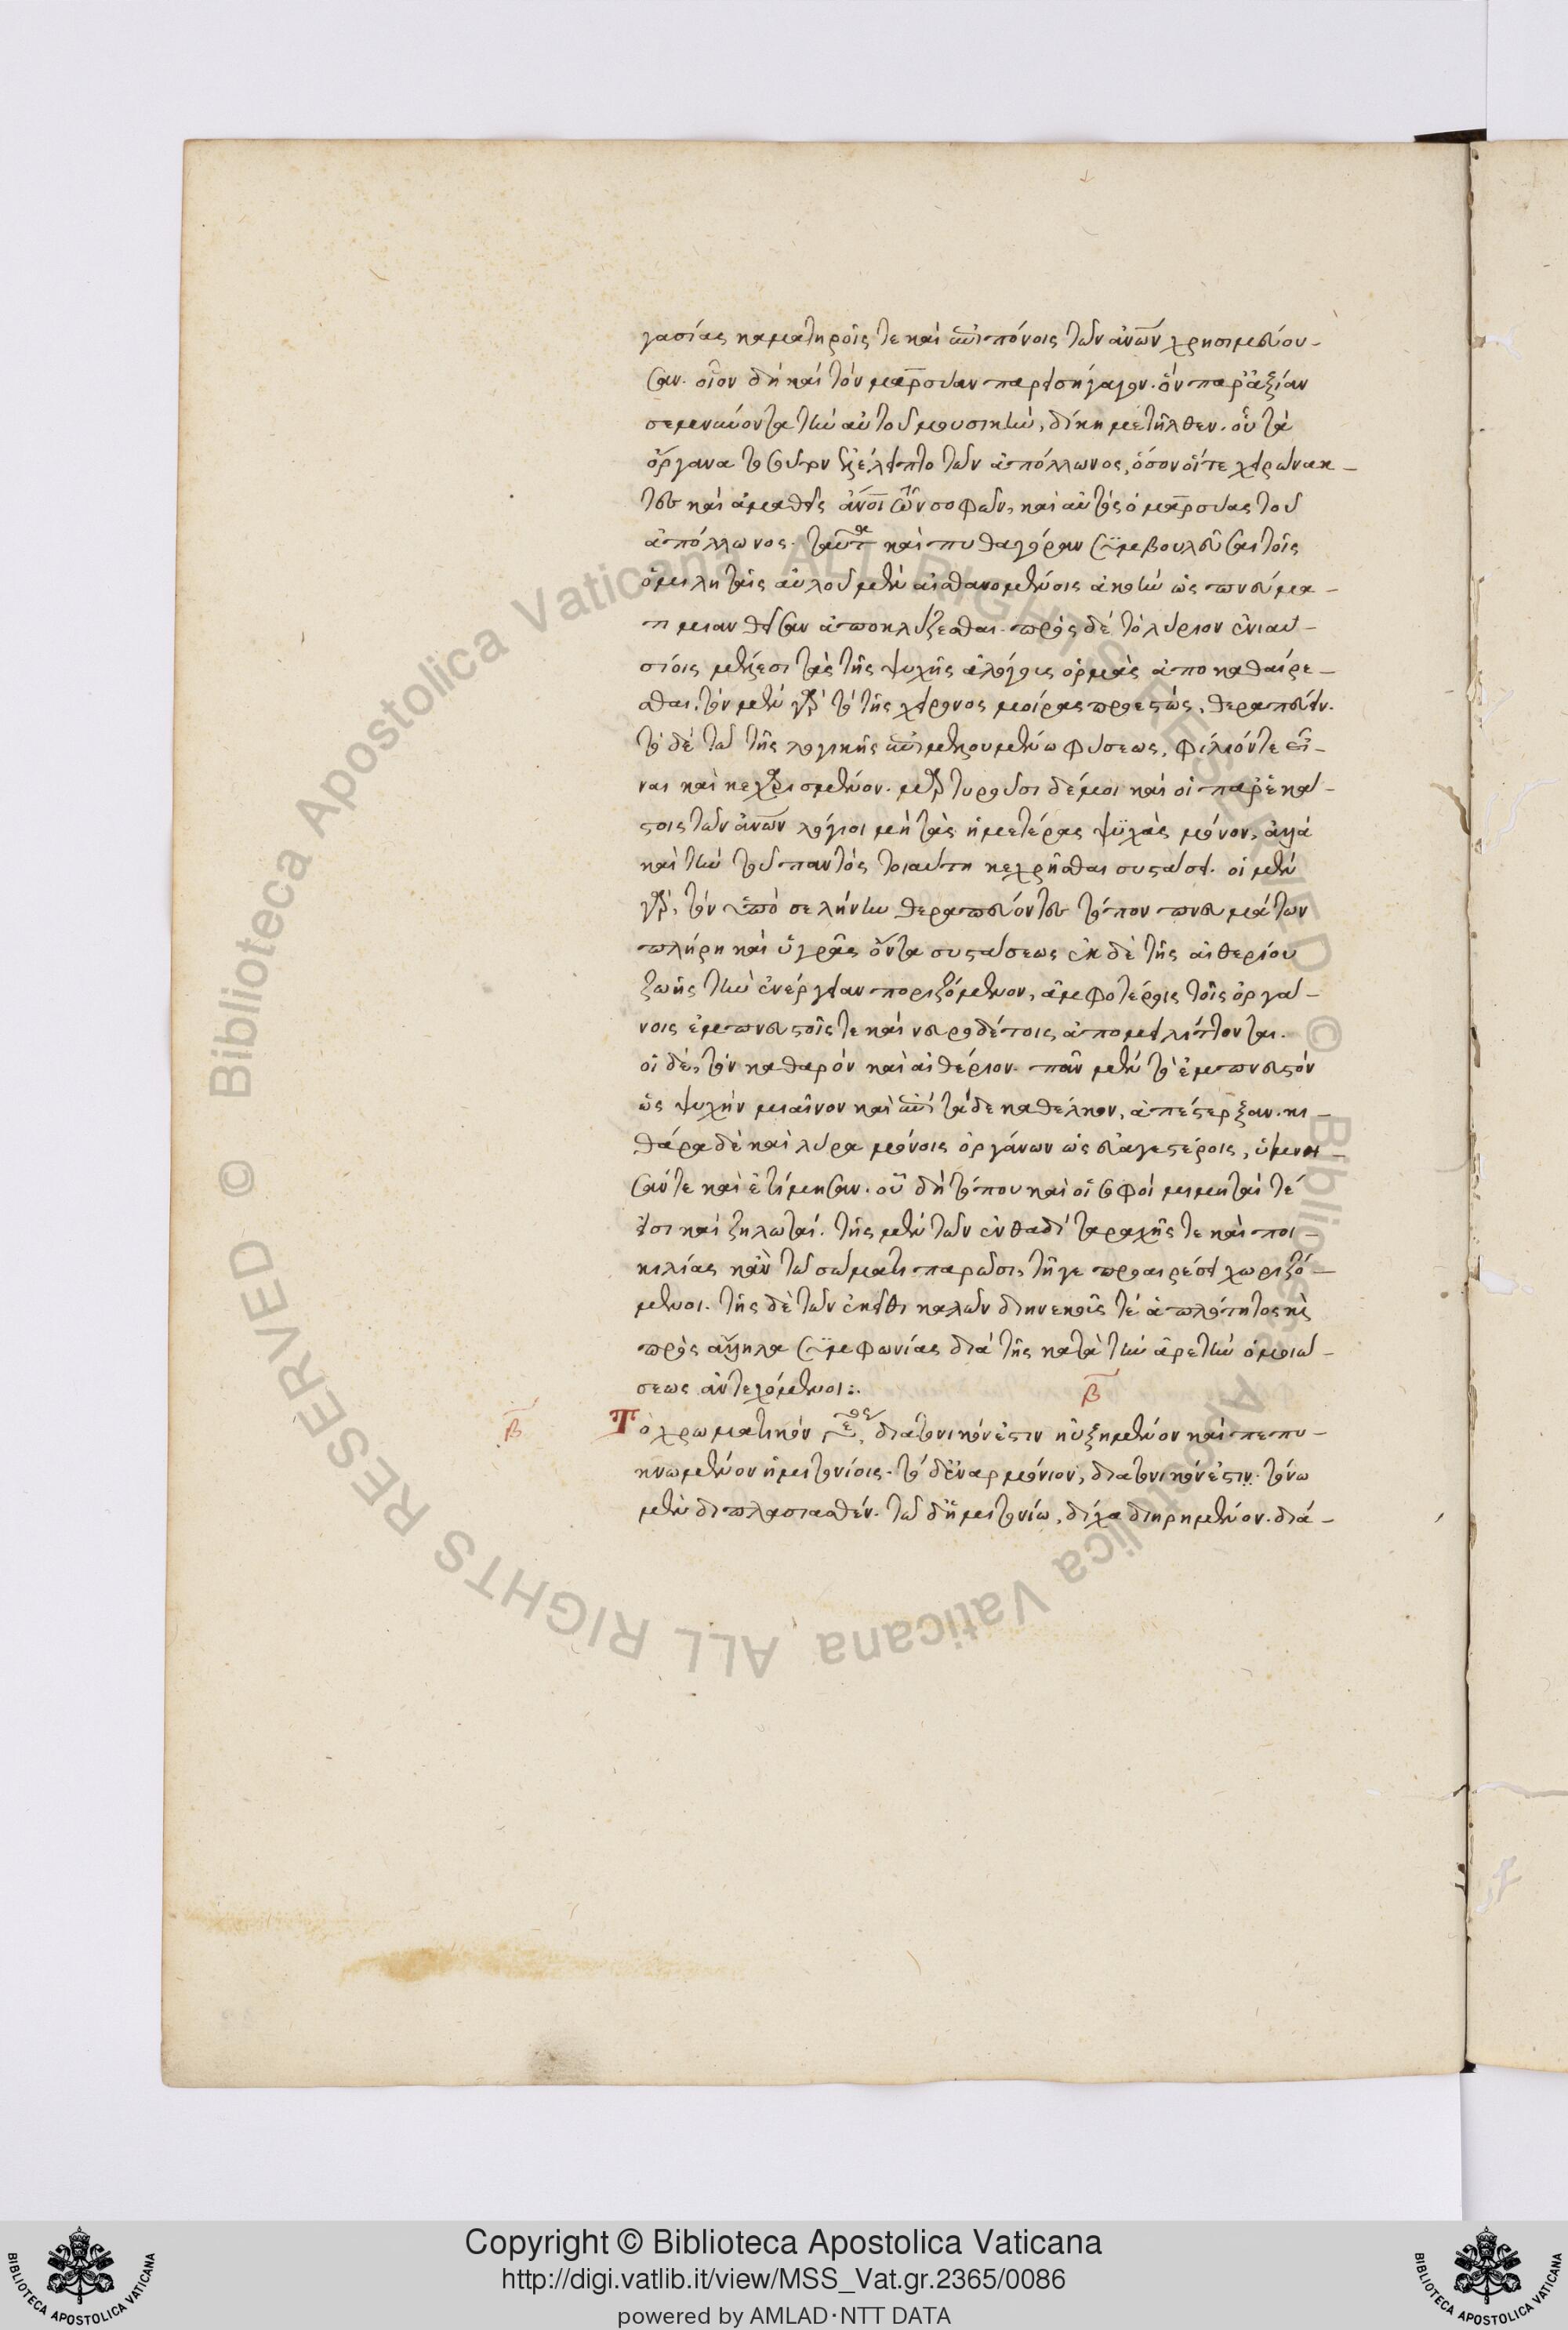 γασίας καματηροῖς τε καὶ ἐπιπόνοις τῶν ἀνων χρησιμεύου-
σαν. οἷον δὴ καὶ τὸν μαρσύαν παρεισήγαγον. ὃν παρ' ἀξίαν
σεμνύνοντα τὴν αὐτοῦ μουσικὴν, δίκη μετῆλθεν. οὗ τὰ
ὄργανα τοσοῦτον ἐλείπετο τῶν ἀπόλλωνος, ὅσον οἵτε χειρώνακ-
τες καὶ ἀμαθεῖς ἄνοι τῶν σοφῶν, καὶ αὐτὸς ὁ μαρσύας τοῦ
ἀπόλλωνος. ταῦτα καὶ πυθαγόραν συμβουλεῦσαι τοῖς
ὁμιληταῖς αὐλοῦ μὲν αἰσθανομένοις ἀκοὴν ὡς πνεύμα-
τι μιανθεῖσαν ἀποκλύζεσθαι. πρὸς δὲ τὸ λύριον ἐνιαυ-
σίοις μέλεσι τὰς τῆς ψυχῆς ἀλόγους ὁρμὰς ἀποκαθαίρε-
σθαι. τὸν μὲν γὰρ τὸ τῆς χείρονος μοίρας προεστὼς, θεραπεύειν.
τὸ δὲ τῷ τῆς λογικῆς ἐπιμελουμένῳ φύσεως, φίλιόντε εἶ-
ναι καὶ κεχαρισμένον. μαρτυροῦσι δέ μοι καὶ οἱ παρ' ἑκά-
στοις τῶν ἀνων λόγιοι μὴ τὰς ἡμετέρας ψυχὰς μόνον, ἀλλὰ
καὶ τὴν τοῦ παντὸς τοιαύτῃ κεχρῆσθαι συστάσει. οἱ μὲν
γὰρ, τὸν ὑπὸ σελήνην θεραπεύοντες τόπον πνευμάτων
πλήρη καὶ ὑγρᾶς ὄντα συστάσεως ἐκ δὲ τῆς αἰθερίου
ζωῆς τὴν ἐνέργειαν ποριζόμενον, ἀμφοτέροις τοῖς ὀργά-
νοις ἐμπνευστοῖς τε καὶ νευροδέτοις, ἀπομειλίττονται.
οἱ δὲ, τὸν καθαρὸν καὶ αἰθέριον. πᾶν μὲν τὸ ἐμπνευστὸν
ὡς ψυχὴν μιαῖνον καὶ ἐπὶ τάδε καθέλκον, ἀπέστερξαν. κι-
θάρᾳ δὲ καὶ λύρᾳ μόνοις ὀργάνων ὡς εὐαγεστέροις, ὕμνη-
σάν τε καὶ ἐτίμησαν. οὗ δὴ τόπου καὶ οἱ σοφοὶ μιμηταί τέ
εἰσι καὶ ζηλωταί. τῆς μὲν τῶν ἐνθαδὶ ταραχῆς τε καὶ ποι-
κιλίας κἂν τῷ σώματι παρῶσι, τῇ γε προαιρέσει χωριζό-
μενοι. τῆς δὲ τῶν ἐκεῖθι καλῶν διηνεκοῦς τε ἁπλότητος καὶ
πρὸς ἄλληλα συμφωνίας διὰ τῆς κατὰ τὴν ἀρετὴν ὁμοιώ-
σεως ἀντεχόμενοι:.
β β
Τὸ χρωματικὸν γένος, διατονικόν ἐστιν ηὐξημένον καὶ πεπυ-
κνωμένον ἡμιτονίοις. τὸ δ' ἐναρμόνιον, διατονικόν ἐστιν. τόνῳ
μὲν διπλασιασθέν. τῷ δ' ἡμιτονίῳ, δίχα διῃρημένον. διά-
Copyright © Biblioteca Apostolica Vaticana
http://digi.vatlib.it/view/MSS_Vat.gr.2365/0086
powered by AMLAD·NTT DATA
BIBLIOTECA APOSTOLICA VATICANA
BIBLIOTECA APOSTOLICA VATICANA
© Biblioteca Apostolica Vaticana ALL RIGHTS RESERVED © Biblioteca Apostolica Vaticana ALL RIGHTS RESERVED